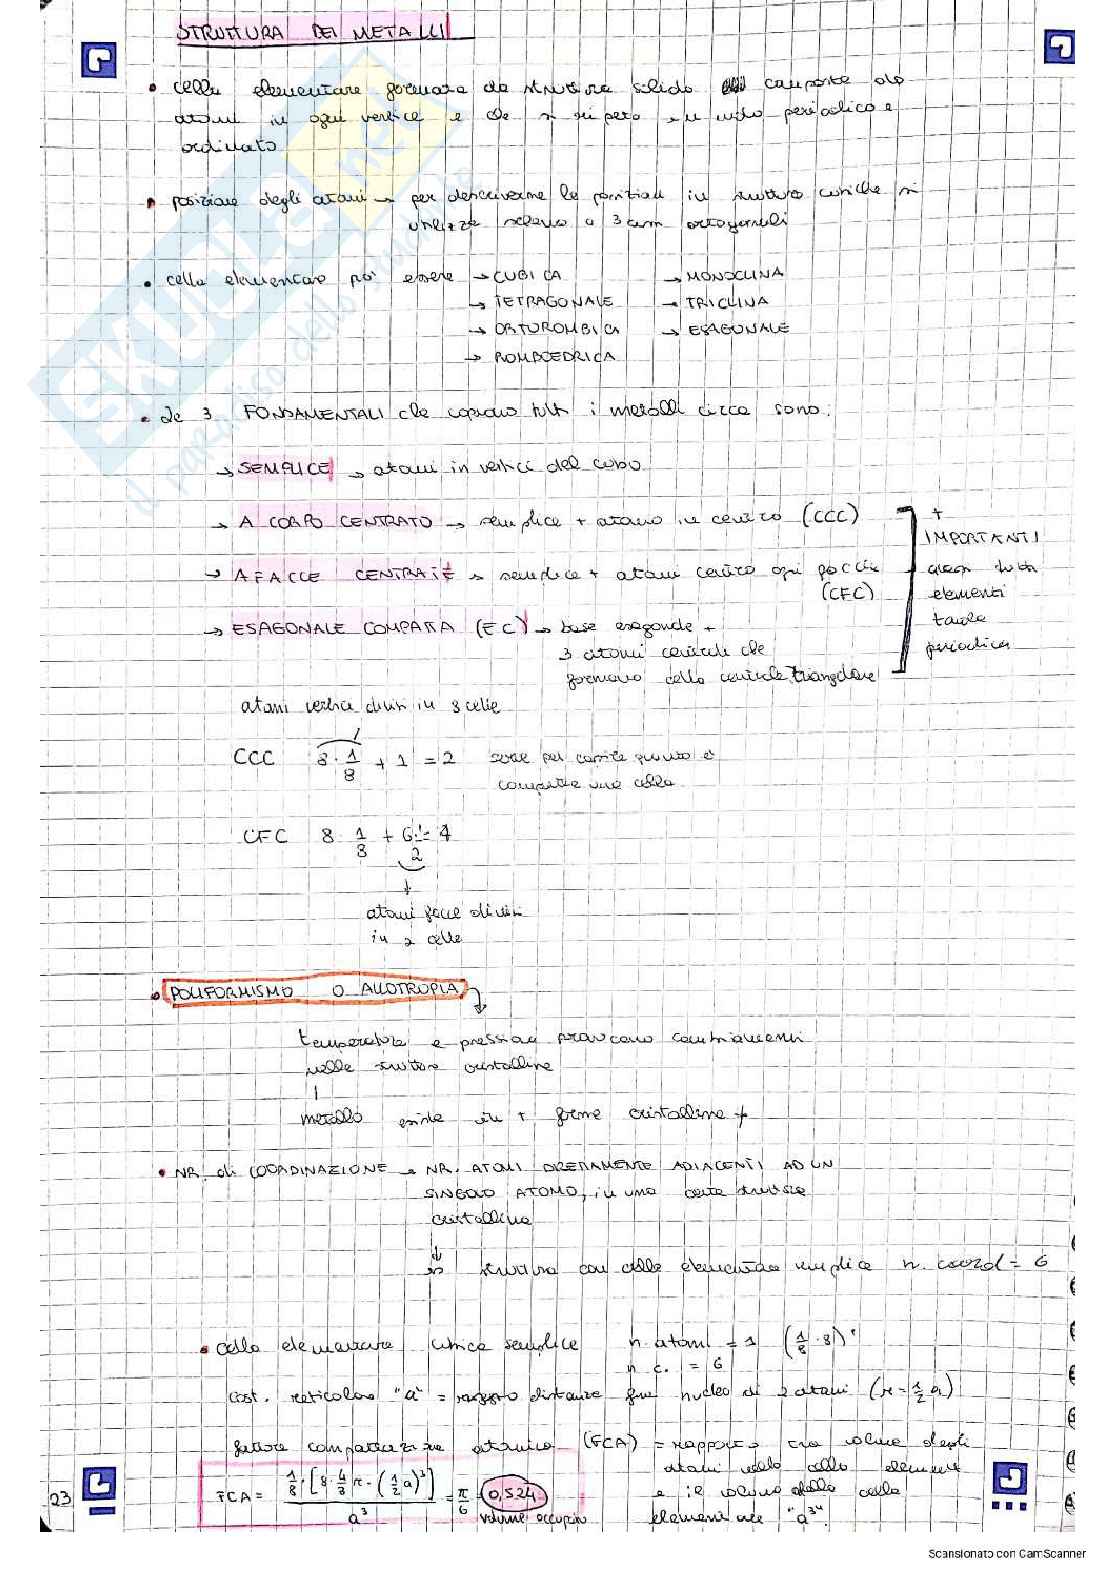 STRUTTURA DEI METALLI
• cella elementare formata da struttura solido composte da
atomi in ogni vertice e che si ripete in modo periodico e
ordinato
• posizione degli atomi → per descriverne le posizioni in strutture cubiche si
utilizza schema a 3 assi ortogonali
• cella elementare può essere → CUBICA → MONOCLINA
→ TETRAGONALE → TRICLINA
→ ORTOROMBICA → ESAGONALE
→ ROMBOEDRICA
• Le 3 FONDAMENTALI che coprono tutti i metalli circa sono:
→ SEMPLICE → atomi in vertici del cubo
→ A CORPO CENTRATO → semplice + atomo in centro (CCC)
→ A FACCE CENTRATE → semplice + atomi centro ogni faccia
(CFC)
→ ESAGONALE COMPATTA (EC) → base esagonale +
3 atomi centrali che
formano cella centrale triangolare
+
IMPORTANTI
quasi tutti
elementi
tavola
periodica
atomi vertice divisi in 8 celle
CCC 8 · 1/8 + 1 = 2 serve per capire quanto è
compatta una cella
CFC 8 · 1/8 + 6 · 1/2 = 4
atomi facce divisi
in 2 celle
• POLIFORMISMO O ALLOTROPIA
temperatura e pressioni provocano cambiamenti
nelle strutture cristalline
metallo esiste in + forme cristalline
• NR. di COORDINAZIONE → NR. ATOMI DIRETTAMENTE ADIACENTI AD UN
SINGOLO ATOMO, in una certa struttura
cristallina
es struttura con cella elementare semplice n. coord = 6
• cella elementare cubica semplice n. atomi = 1 (1/8 · 8)
n c. = 6
cost. reticolare "a" = distanza fra nucleo di 2 atomi (r = 1/2 a)
fattore compattazione atomico (FCA) = rapporto tra volume degli
atomi nella cella elementare
e il volume della cella
elementare "a³".
FCA = 1/8 · [8 · 4/3 π · (1/2 a)³] / a³ = π/6 = 0,524
volume occupato
23
SKUOLA.net
il paradiso dello studente
Scansionato con CamScanner